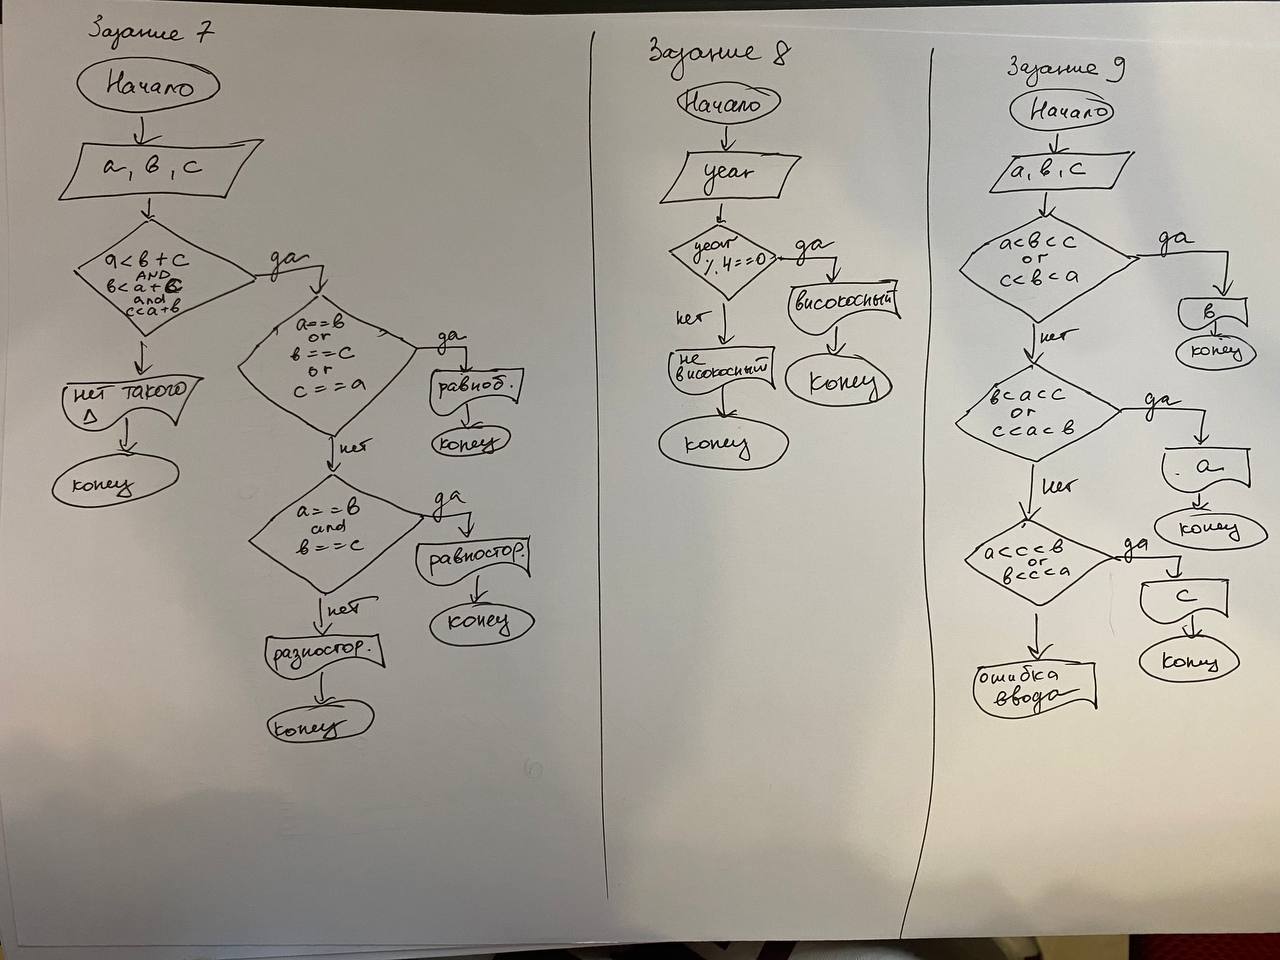 Задание 7
Начало
a, в, c
a < в + c
AND
в < a + c
and
c < a + в
да
нет такого
Δ
конец
a == в
or
в == c
or
c == a
да
равноб.
конец
нет
a == в
and
в == c
да
равностор.
конец
нет
разностор.
конец
Задание 8
Начало
year
year
% 4 == 0
да
високосный
конец
нет
не
високосный
конец
Задание 9
Начало
a, в, c
a < в < c
or
c < в < a
да
в
конец
нет
в < a < c
or
c < a < в
да
a
конец
нет
a < c < в
or
в < c < a
да
c
конец
ошибка
ввода